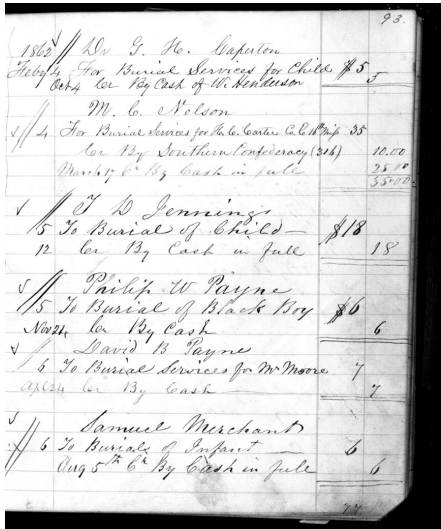 93.
1862 Dr G. H. Caperton
Feby 4 For Burial Services for Child $5
Oct 4 Cr By Cash of W. Henderson 5
M. C. Nelson
4 For Burial Services for H. C. Carter Co. E 18th Miss 35
Cr By Southern Confederacy (316) 10.00
March 17 Cr By Cash in full 25.00
35.00
T D Jennings
5 To Burial of Child — $18
12 Cr By Cash in full 18
Philip W Payne
5 To Burial of Black Boy $6
Nov 21 Cr By Cash 6
David B Payne
6 To Burial Services for Mr Moore 7
Apl 24 Cr By Cash 7
Samuel Merchant
6 To Burial of Infant — 6
Aug 5th Cr By Cash in full 6